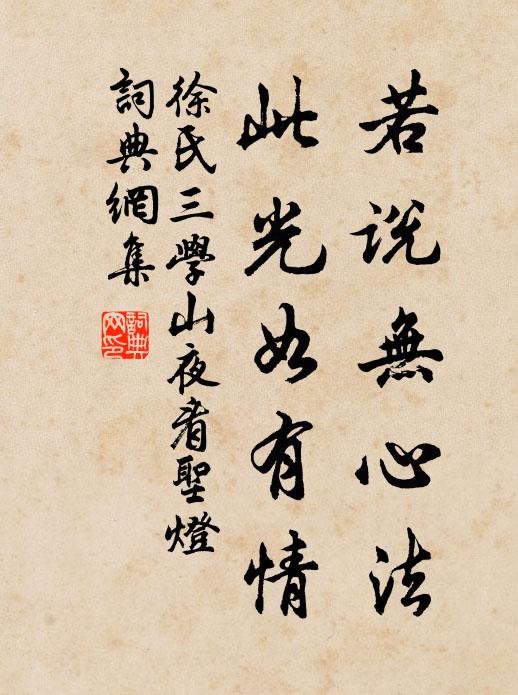 若說無心法
此光如有情
徐氏三學山夜看聖燈
詞典網集
詞典
网印